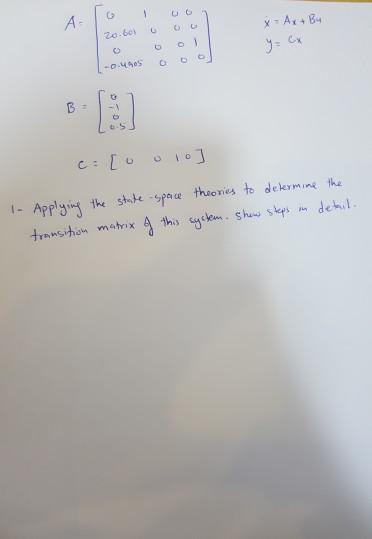 A = [ 0 1 0 0
20.601 0 0 0
0 0 0 1
-0.4905 0 0 0 ]
ẋ = Ax + Bu
y = Cx
B = [ 0
-1
0
0.5 ]
C = [ 0 0 1 0 ]
1- Applying the state-space theories to determine the
transition matrix of this system. show steps in detail.